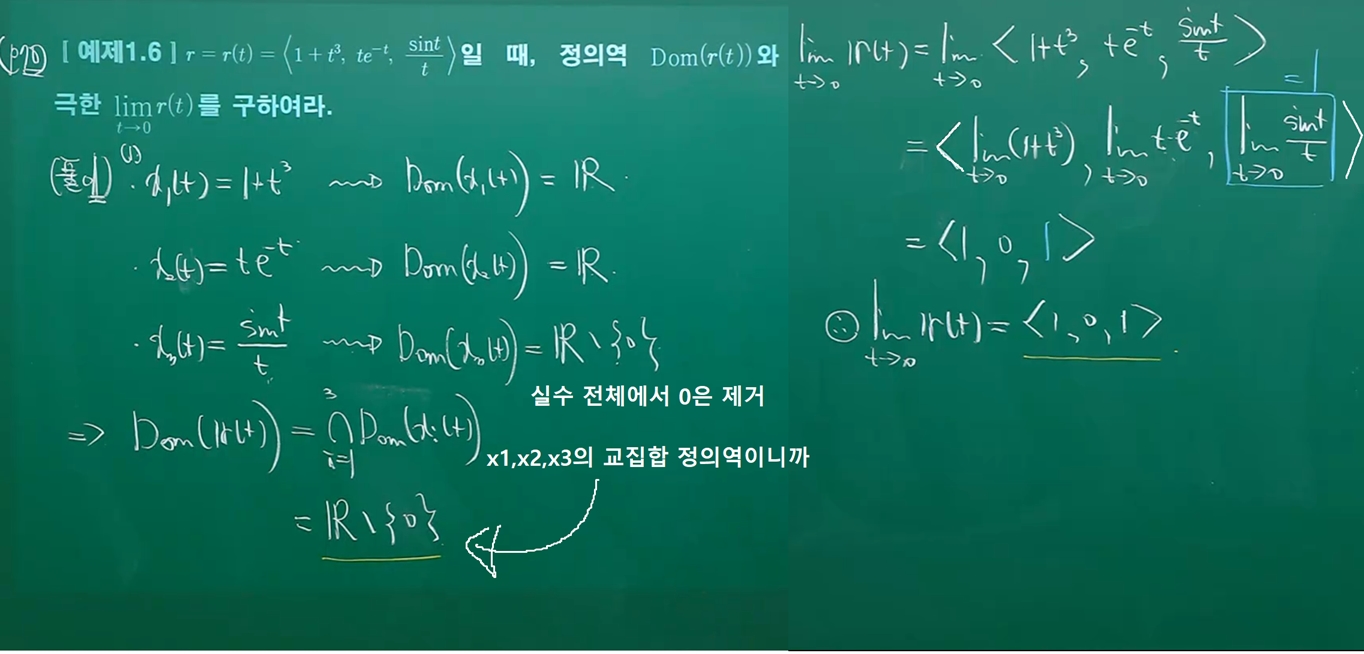 (p20) [ 예제1.6 ] r = r(t) = ⟨1 + t³, te⁻ᵗ, sint/t⟩일 때, 정의역 Dom(r(t))와
극한 lim_{t→0} r(t)를 구하여라.
(풀이) (1) · x₁(t) = 1+t³ ⟿ Dom(x₁(t)) = ℝ.
· x₂(t) = te⁻ᵗ ⟿ Dom(x₂(t)) = ℝ.
· x₃(t) = sint/t ⟿ Dom(x₃(t)) = ℝ \ {0}
실수 전체에서 0은 제거
=> Dom(r(t)) = ∩_{i=1}^{3} Dom(xᵢ(t))
x1,x2,x3의 교집합 정의역이니까
= ℝ \ {0}
lim_{t→0} r(t) = lim_{t→0} ⟨1+t³, te⁻ᵗ, sint/t⟩
= 1
= ⟨lim_{t→0} (1+t³), lim_{t→0} t·e⁻ᵗ, lim_{t→0} sint/t⟩
= ⟨1, 0, 1⟩
∴ lim_{t→0} r(t) = ⟨1, 0, 1⟩.